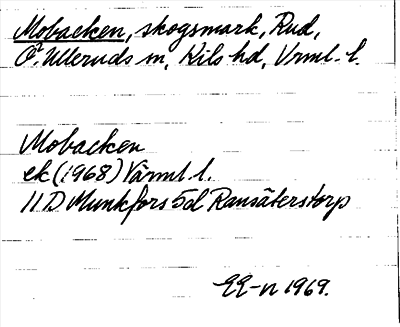 Mobacken, skogsmark, Rud,
Ö. Ulleruds sn, Kils hd, Vrml. l.
Mobacken
ek (1968) Värml. l.
11D Munkfors 5d Ransäterstorp
EE-n 1969.